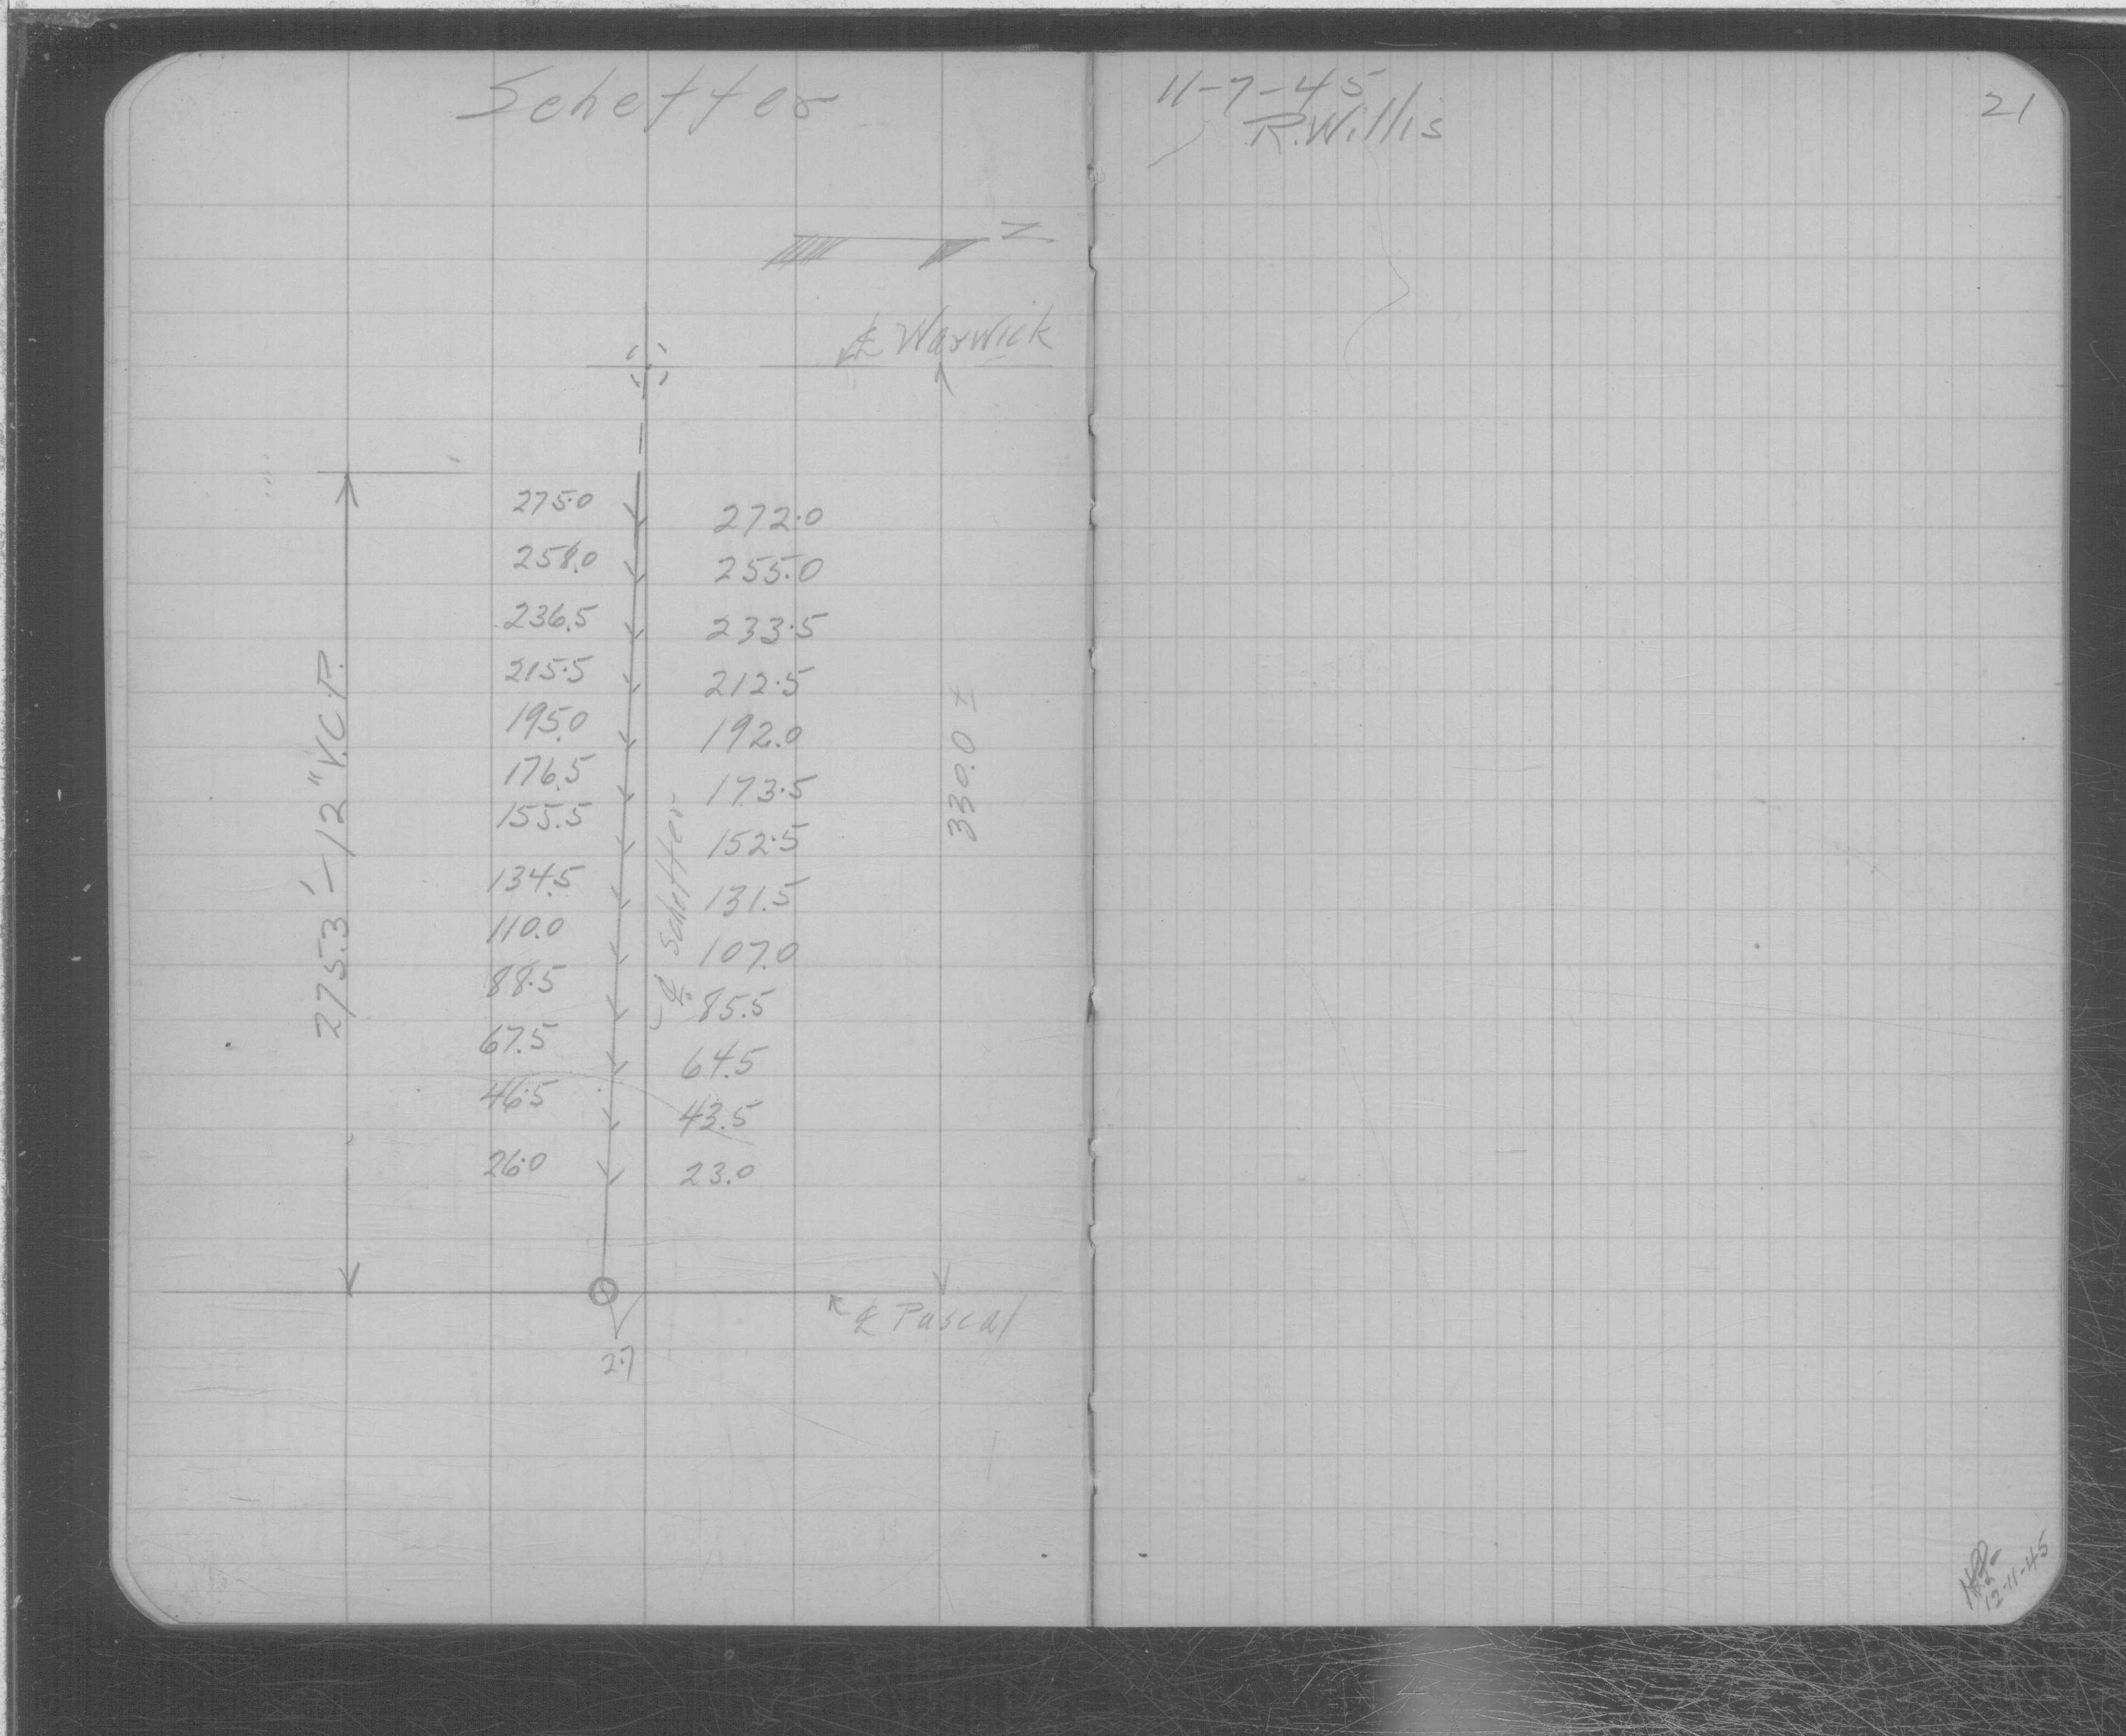 Scheffer
11-7-45
R. Willis
21
N
℄ Warwick
275.0 272.0
258.0 255.0
236.5 233.5
215.5 212.5
195.0 192.0
176.5 173.5
155.5 152.5
134.5 131.5
110.0 107.0
88.5 85.5
67.5 64.5
46.5 43.5
26.0 23.0
275.3' - 12" V.C.P.
℄ Scheffer
330.0 ±
℄ Pascal
2.7
12-11-45